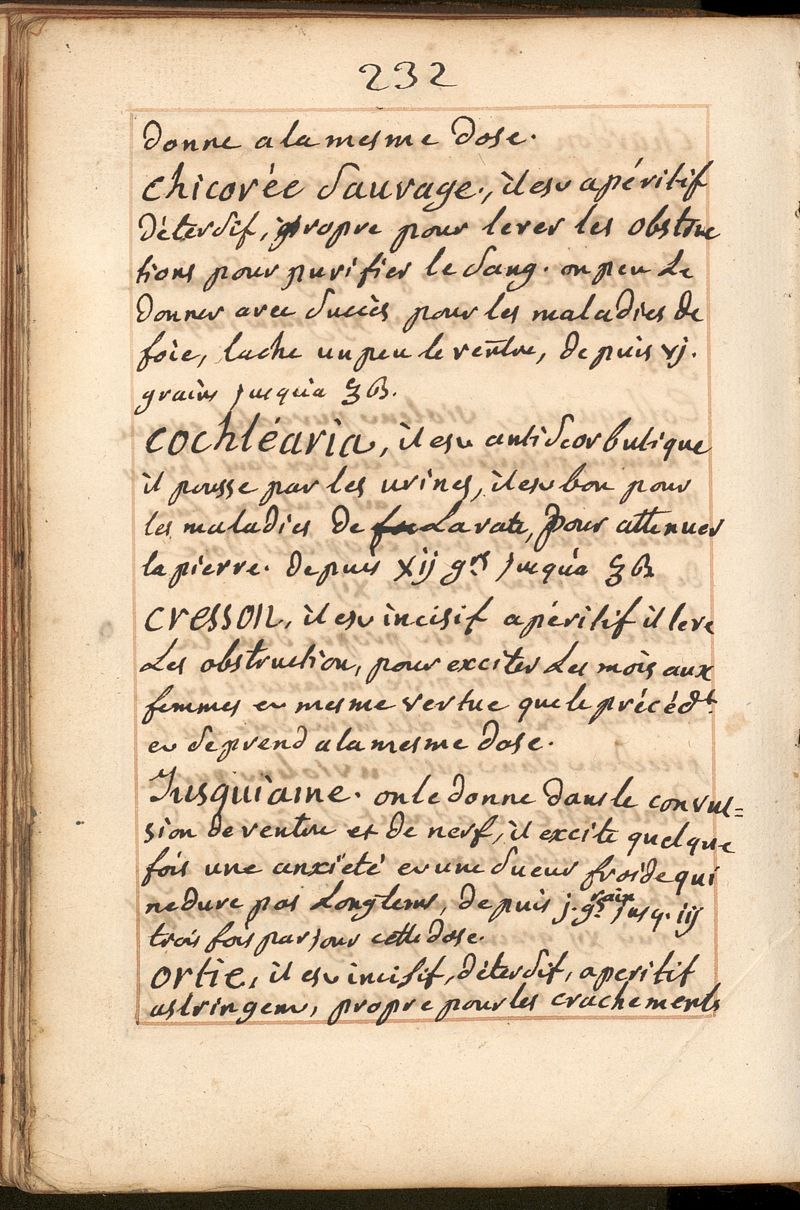 232
donne a la mesme dose.
Chicorée Sauvage., il est apéritif
détersif, propre pour lever les obstruc
tions pour purifier le sang. on peu Le
donner avec succès pour les maladies de
foie, lache un peu le ventre, depuis vj.
grains jusqu'a ʒß.
Cochléaria, il est antiscorbutique
il pousse par les urines, il est bon pour
les maladies de La rate, pour attenuer
la pierre. depuis xij grs jusqu'a ʒß
Cresson, il est incisif apéritif il leve
Les obstruction, pour exciter Les mois aux
femmes et mesme vertue que le précédt
et se prend a la mesme dose.
Jusquiame. on le donne dans le convul=
sion de ventre et de nerf, il excite quelque
fois une anxiété et une sueur froide qui
ne dure pas Longtems, depuis j. grain jusq. iij
trois fois par jour cette dose.
Ortie, il est incisif, détersif, aperitif
astringent, propre pour les crachements